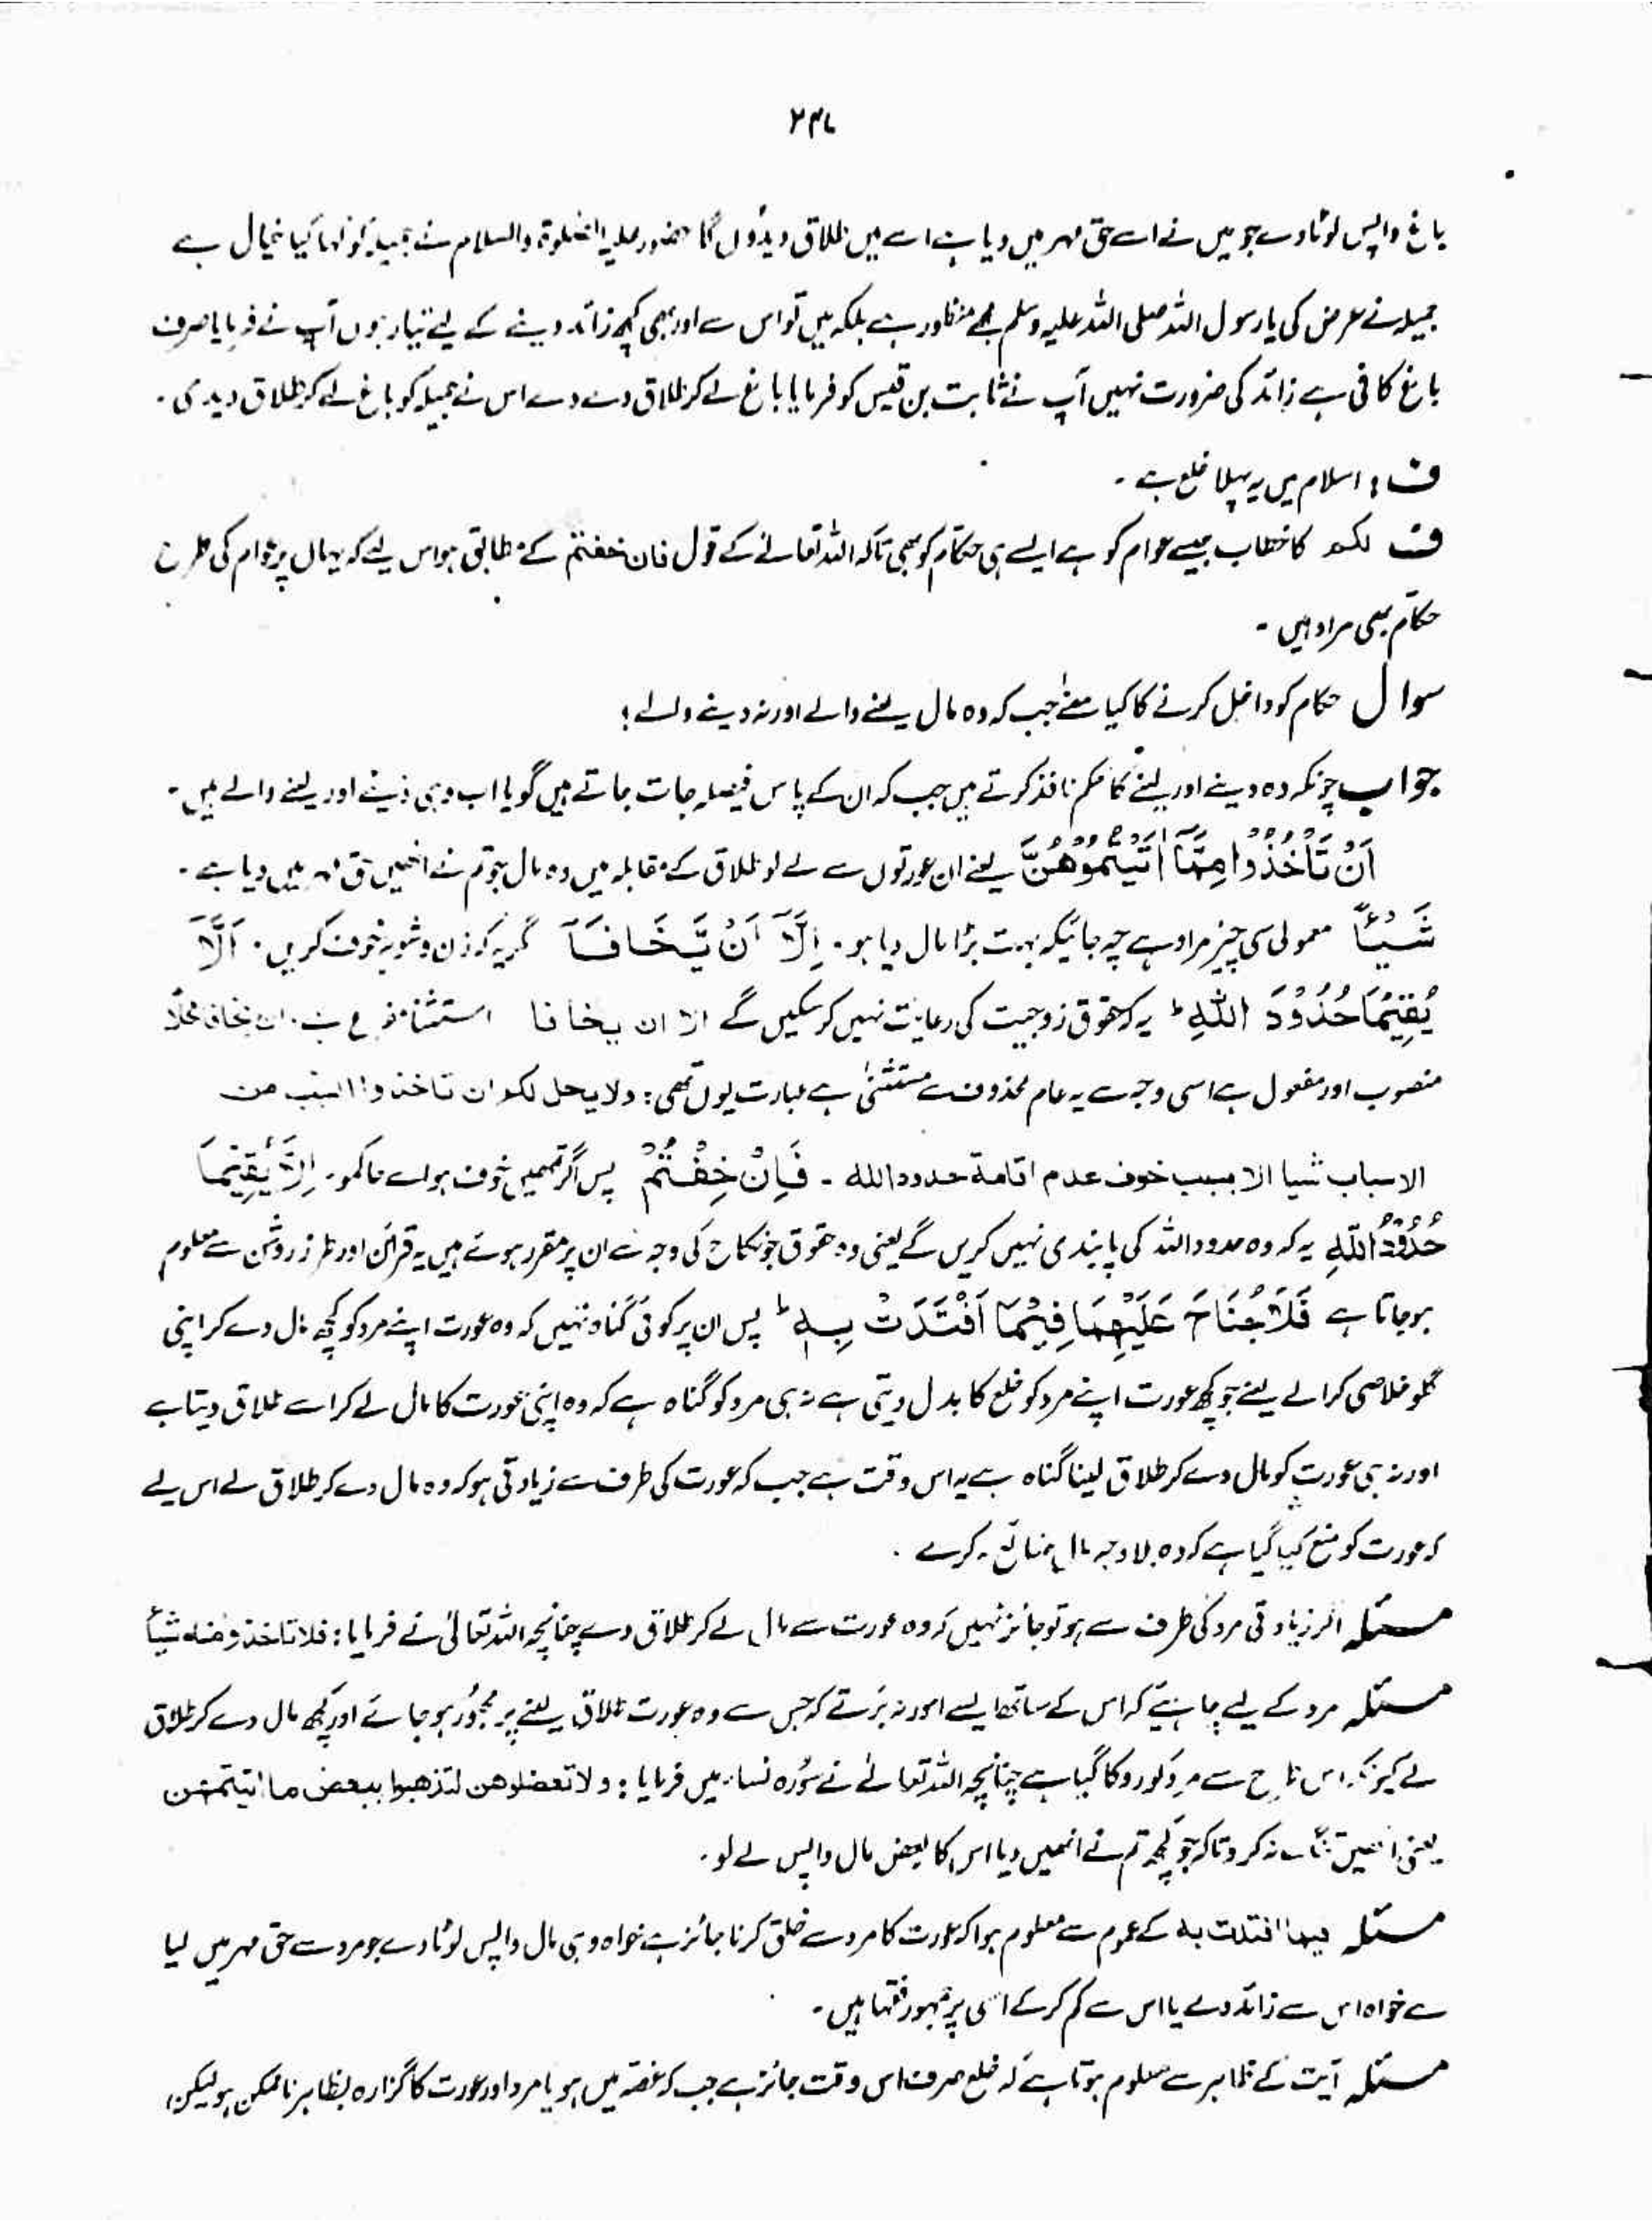 ۲۴۷
باغ واپس لوٹا دے جو میں نے اسے حق مہر میں دیا ہے اسے میں طلاق دیدُوں گا حضور علیہ الصلوٰۃ والسلام نے جمیلہ کو کہا کیا خیال ہے
جمیلہ نے عرض کی یا رسول اللہ صلی اللہ علیہ وسلم مجھے منظور ہے بلکہ میں تو اس سے اور بھی کچھ زائد دینے کے لیے تیار ہوں آپ نے فرمایا صرف
باغ کافی ہے زائد کی ضرورت نہیں آپ نے ثابت بن قیس کو فرمایا باغ لے کر طلاق دے دے اس نے جمیلہ کو باغ لے کر طلاق دیدی ۔
ف : اسلام میں یہ پہلا خلع ہے ۔
ف لکم کا خطاب جیسے عوام کو ہے ایسے ہی حکّام کو بھی تاکہ اللہ تعالےٰ کے قول فان خفتم کے مطابق ہو اس لیے کہ یہاں پر عوام کی طرح
حکّام بھی مراد ہیں ۔
سوال حکام کو داخل کرنے کا کیا معنےٰ جب کہ وہ مال لینے والے اور نہ دینے والے ؛
جواب چونکہ وہ دینے اور لینے کا حکم نافذ کرتے ہیں جب کہ ان کے پاس فیصلہ جات جاتے ہیں گویا اب وہی دینے اور لینے والے ہیں ۔
اَنْ تَأْخُذُوْا مِمَّآ اٰتَيْتُمُوْهُنَّ یعنے ان عورتوں سے لے لو طلاق کے مقابلہ میں وہ مال جو تم نے انھیں حق مہر میں دیا ہے ۔
شَيْئًا معمولی سی چیز مراد ہے چہ جائیکہ بہت بڑا مال دیا ہو ۔ اِلَّآ اَنْ يَّخَافَآ مگر یہ کہ زن و شوہر خوف کریں ۔ اَلَّا
يُقِيْمَا حُدُوْدَ اللّٰهِ ؕ یہ کہ حقوق زوجیت کی رعایت نہیں کر سکیں گے الا ان یخافا استثنا مفرغ ہے ۔ ان یخافا محلًا
منصوب اور مفعول ہے اسی وجہ سے یہ عام محذوف سے مستثنٰی ہے عبارت یوں تھی : ولا یحل لکم ان تاخذوا السبب من
الاسباب شیا الا بسبب خوف عدم اقامة حدود الله ۔ فَاِنْ خِفْتُمْ پس اگر تمہیں خوف ہو اے حاکمو ۔ اِلَّا يُقِيْمَا
حُدُوْدُ اللّٰهِ یہ کہ وہ حدود اللہ کی پابندی نہیں کریں گے یعنی وہ حقوق جو نکاح کی وجہ سے ان پر مقرر ہوئے ہیں یہ قرائن اور طرز روش سے معلوم
ہو جاتا ہے فَلَا جُنَاحَ عَلَيْهِمَا فِيْمَا افْتَدَتْ بِهٖ ؕ پس ان پر کوئی گناہ نہیں کہ وہ عورت اپنے مرد کو کچھ مال دے کر اپنی
گلو خلاصی کرالے یعنے جو کچھ عورت اپنے مرد کو خلع کا بدل دیتی ہے نہ ہی مرد کو گناہ ہے کہ وہ اپنی عورت کا مال لے کر اسے طلاق دیتا ہے
اور نہ ہی عورت کو مال دے کر طلاق لینا گناہ ہے یہ اس وقت ہے جب کہ عورت کی طرف سے زیادتی ہو کہ وہ مال دے کر طلاق لے اس لیے
کہ عورت کو منع کیا گیا ہے کہ وہ بلا وجہ مال ضائع نہ کرے ۔
مسئلہ اگر زیادتی مرد کی طرف سے ہو تو جائز نہیں کہ وہ عورت سے مال لے کر طلاق دے چنانچہ اللہ تعالیٰ نے فرمایا : فلا تاخذو منه شیأ
مسئلہ مرد کے لیے چاہئے کہ اس کے ساتھ ایسے امور نہ برتے کہ جس سے وہ عورت طلاق لینے پر مجبُور ہو جائے اور کچھ مال دے کر طلاق
لے کیونکہ اس طرح سے مرد کو روکا گیا ہے چنانچہ اللہ تعالےٰ نے سُورہ نساء میں فرمایا : ولا تعضلوهن لتذهبوا ببعض ما اتیتموهن
یعنی انھیں تنگ نہ کرو تاکہ جو کچھ تم نے انھیں دیا اس کا بعض مال واپس لے لو ۔
مسئلہ فیما افتدت به کے عموم سے معلوم ہوا کہ عورت کا مرد سے خلع کرنا جائز ہے خواہ وہی مال واپس لوٹا دے جو مرد سے حق مہر میں لیا
ہے خواہ اس سے زائد دے یا اس سے کم کر کے اسی پر جمہور فقہا ہیں ۔
مسئلہ آیت کے ظاہر سے معلوم ہوتا ہے کہ خلع صرف اس وقت جائز ہے جب کہ غصّہ میں ہو یا مرد اور عورت کا گزارہ بظاہر ناممکن ہو لیکن